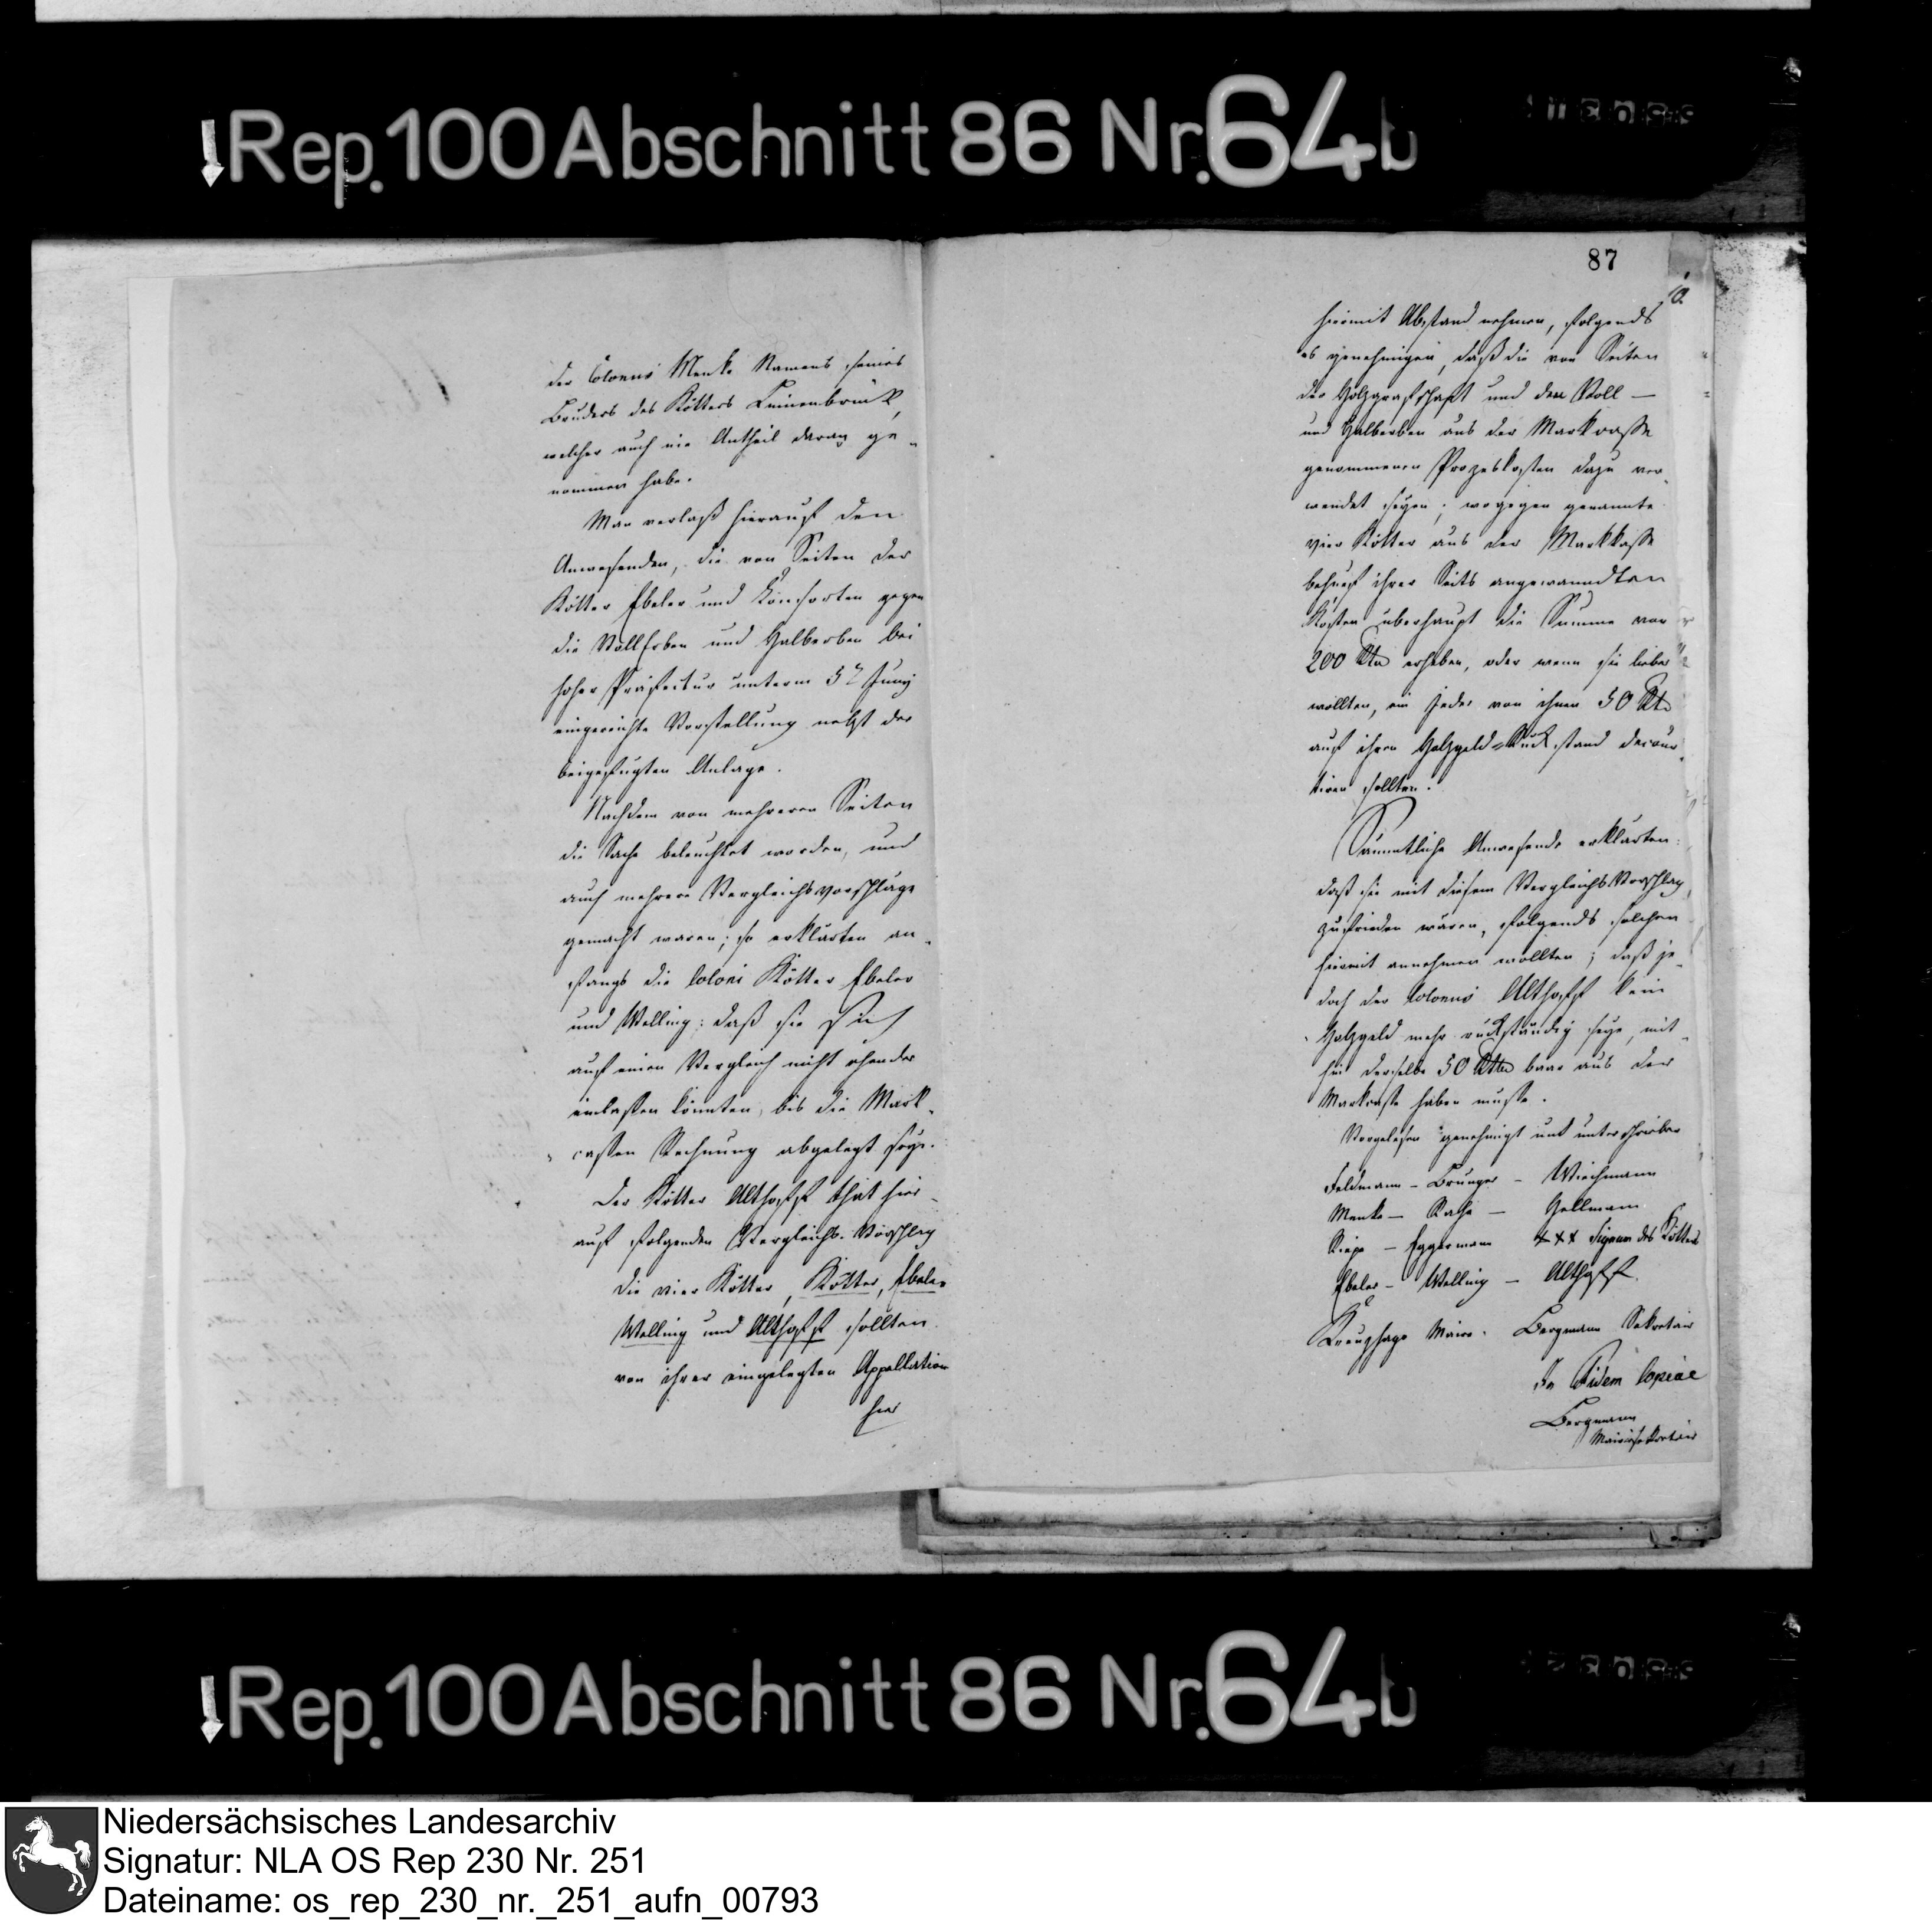 Rep. 100 Abschnitt 86 Nr. 64b
der Colonus Menke Namens seines
Bruders des Kötters Leimenbrink,
welcher auch nie Antheil daran ge-
nommen habe.
Man verlaß hierauf den
Anwesenden, die von Seiten der
Kötter Ebeler und Konsorten gegen
die VollErben und Halberben bei
hoher Präfectur unterm 5n Juny
eingereichte Vorstellung nebst der
beigefügten Anlage.
Nachdem von mehreren Seiten
die Sache beleuchtet worden, und
auch mehrere Vergleichsvorschläge
gemacht waren; so erklärten an-
fangs die Coloni Kötter Ebeler
und Welling; daß sie sich
auf einen Vergleich nicht ehender
einlaßen könnten, bis die Mark-
cassen Rechnung abgelegt seye.
Der Kötter Althoff that hier-
auf folgenden Vergleichs-Vorschlag
die vier Kötter, Kötter, Ebeler
Welling und Althoff sollten
von ihrer eingelegten Appellation
hier
87
10.
hiermit Abstand nehmen, folgends
es genehmigen, daß die von Seiten
der Holzgrafschaft und den Voll-
und Halberben aus der Markcasse
genommenen Prozeskosten dazu ver-
wendet seyen; wogegen genannte
vier Kötter aus der Markkasse
behuef ihrer Seits angewanndten
Kosten überhaupt die Summe von
200 Rtlr erheben, oder wenn sie lieber
wollten, ein jeder von ihnen 50 Rtlr
auf ihren Holzgeld-Rückstand decour-
tiren sollten.
Sämmtliche Anwesende erklärten:
daß sie mit diesem Vergleichs Vorschlag
zufrieden wären, folgends solchen
hiermit annehmen wollten; daß je-
doch der Colonus Althoff kein
Holzgeld mehr rückständig seye, mit-
hin derselbe 50 Rtlr baar aus der
Markcasse haben müsse.
Vorgelesen genehmigt und unterschrieben
Feldmann - Brunger - Wiechmann
Menke - Rahe - Hellmann
Riepe - Eggermann +++ Signum des Kötters
Ebeler - Welling - Althoff.
Kreuzhage Maire. Bergmann Sekretair
In Fidem Copiae
Bergmann
Mairiesekretair
Rep. 100 Abschnitt 86 Nr. 64b
Niedersächsisches Landesarchiv
Signatur: NLA OS Rep 230 Nr. 251
Dateiname: os_rep_230_nr._251_aufn_00793